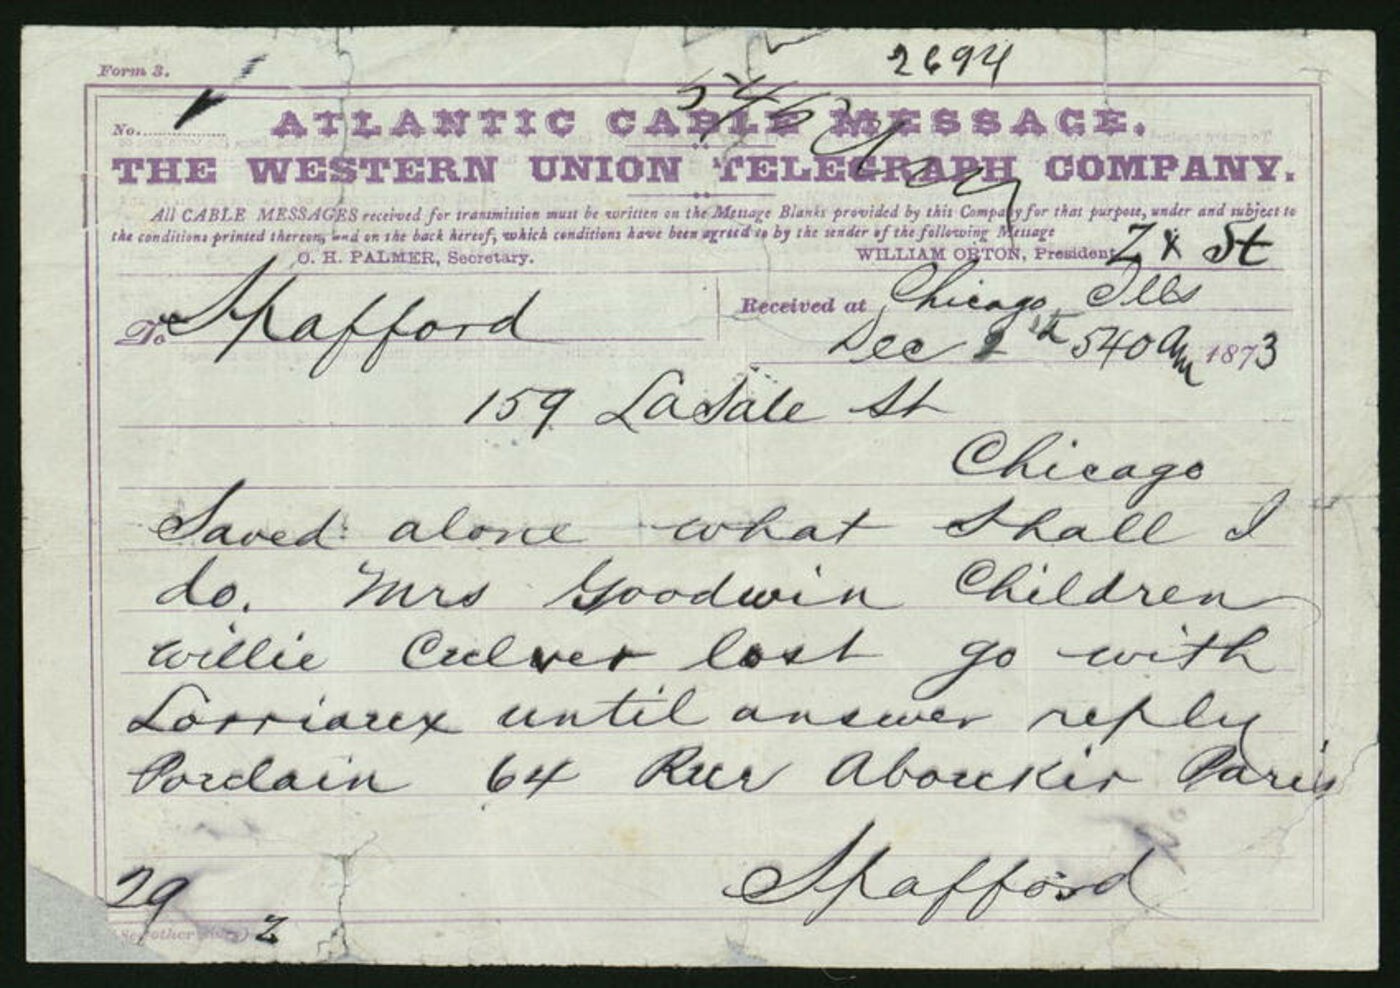 2694
Form 3.
No.
ATLANTIC CABLE MESSAGE.
THE WESTERN UNION TELEGRAPH COMPANY.
All CABLE MESSAGES received for transmission must be written on the Message Blanks provided by this Company for that purpose, under and subject to
the conditions printed thereon, and on the back hereof, which conditions have been agreed to by the sender of the following Message
O. H. PALMER, Secretary. WILLIAM ORTON, President
To Spafford
Received at Chicago Ills
Dec 540 am 1873
159 LaSale St
Chicago
Saved alone what shall I
do. Mrs Goodwin Children
Willie Culver lost go with
Lorriaux until answer reply
Porclain 64 Rue Aboukir Paris
Spafford
29
2
(See other side)